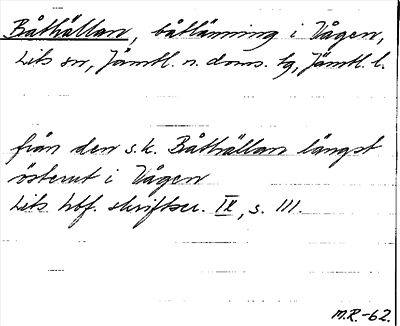 Båthällan, båtlänning i Vågen,
Lits sn, Jämtl. n. doms. tg, Jämtl. l.
från den s.k. Båthällan längst
österut i Vågen
Lits hbf. skriftser. IV, s. 111.
M.R.-62.